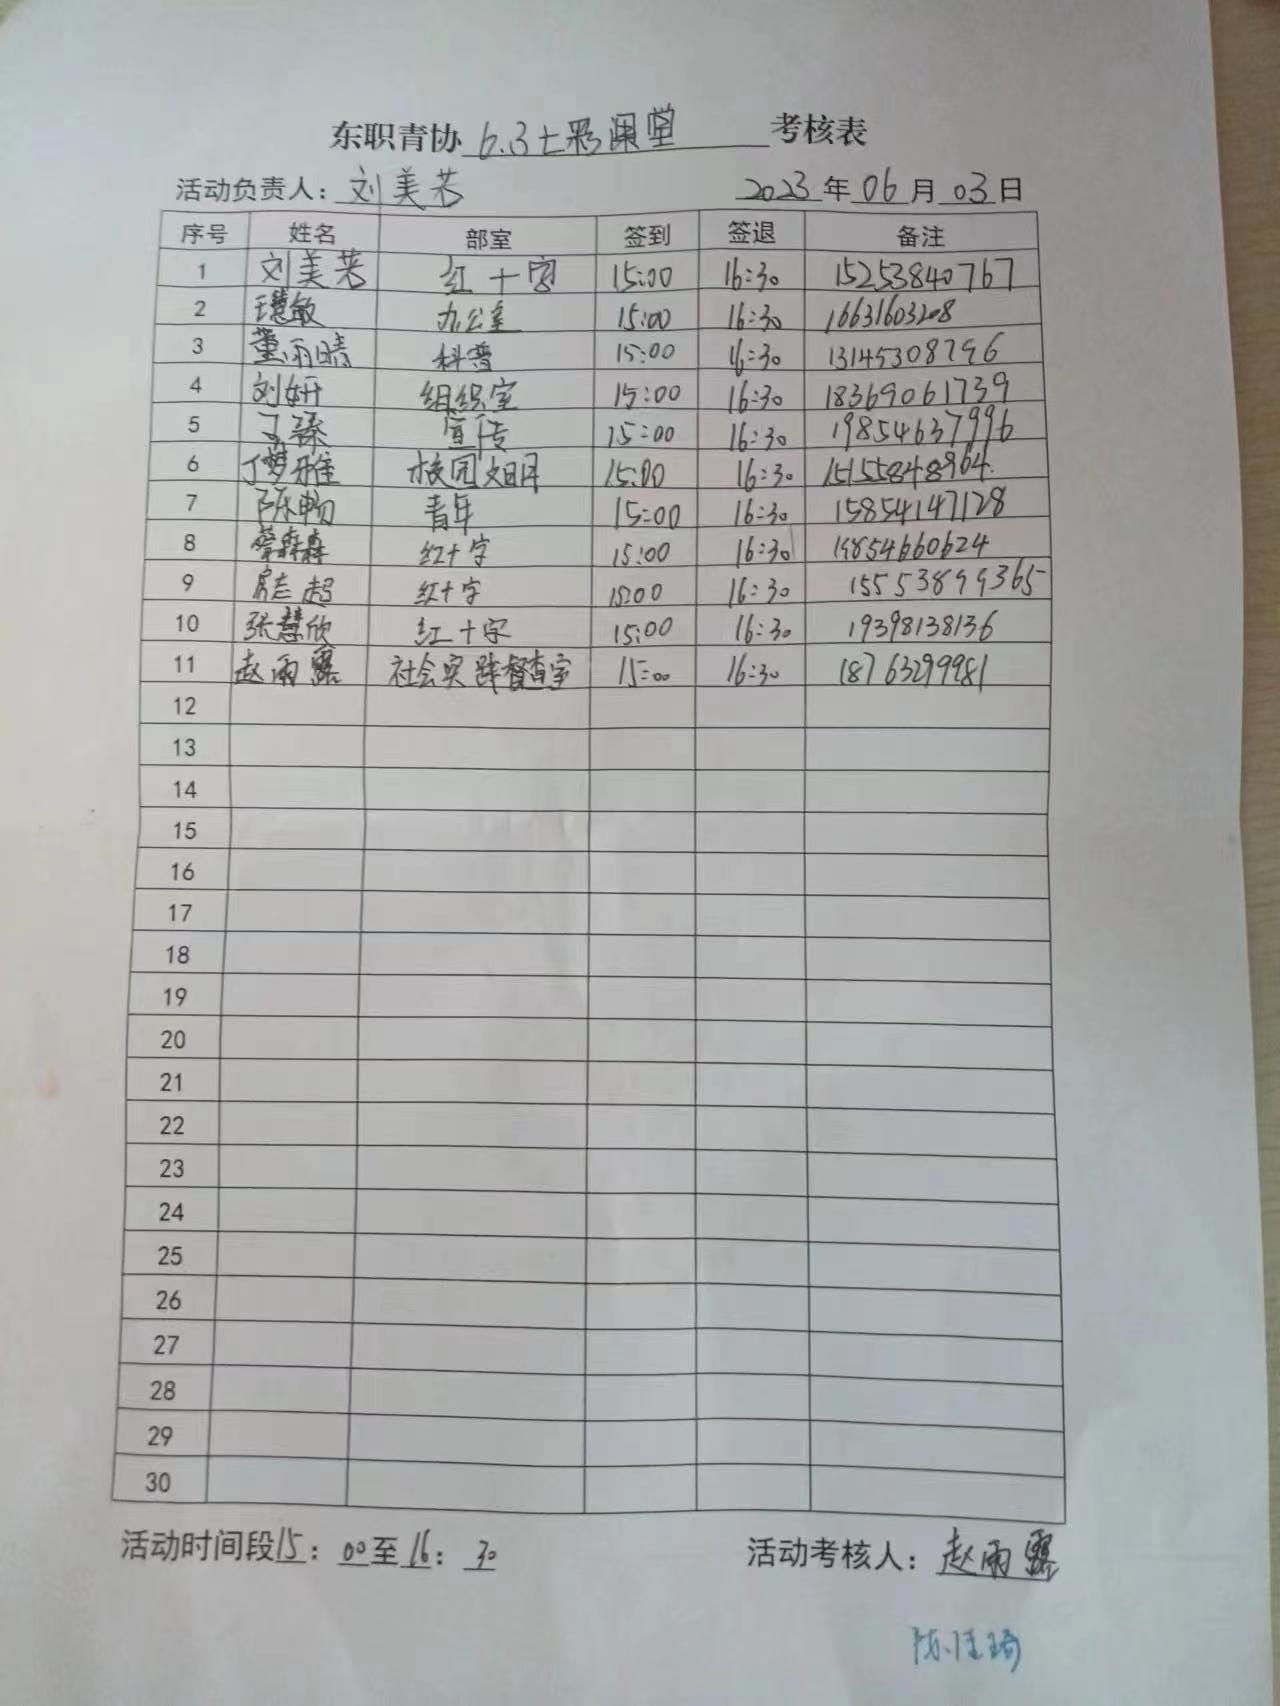 东职青协 6.3七彩课堂 考核表
活动负责人：刘美芳 2023年06月03日
序号 姓名 部室 签到 签退 备注
1 刘美芳 红十字 15:00 16:30 15253840767
2 王慧敏 办公室 15:00 16:30 16631603208
3 董雨晴 科普 15:00 16:30 13145308796
4 刘妍 组织室 15:00 16:30 18369061739
5 宣传 15:00 16:30 19854637996
6 丁梦雅 校园文明 15:00 16:30 15155848964
7 陈畅 青年 15:00 16:30 15854147128
8 红十字 15:00 16:30 19854660624
9 房志超 红十字 15:00 16:30 15553899365
10 张慧欣 红十字 15:00 16:30 19398138136
11 赵雨露 社会实践督查室 15:00 16:30 18763299981
12
13
14
15
16
17
18
19
20
21
22
23
24
25
26
27
28
29
30
活动时间段15：00至16：30 活动考核人：赵雨露
陈佳琦